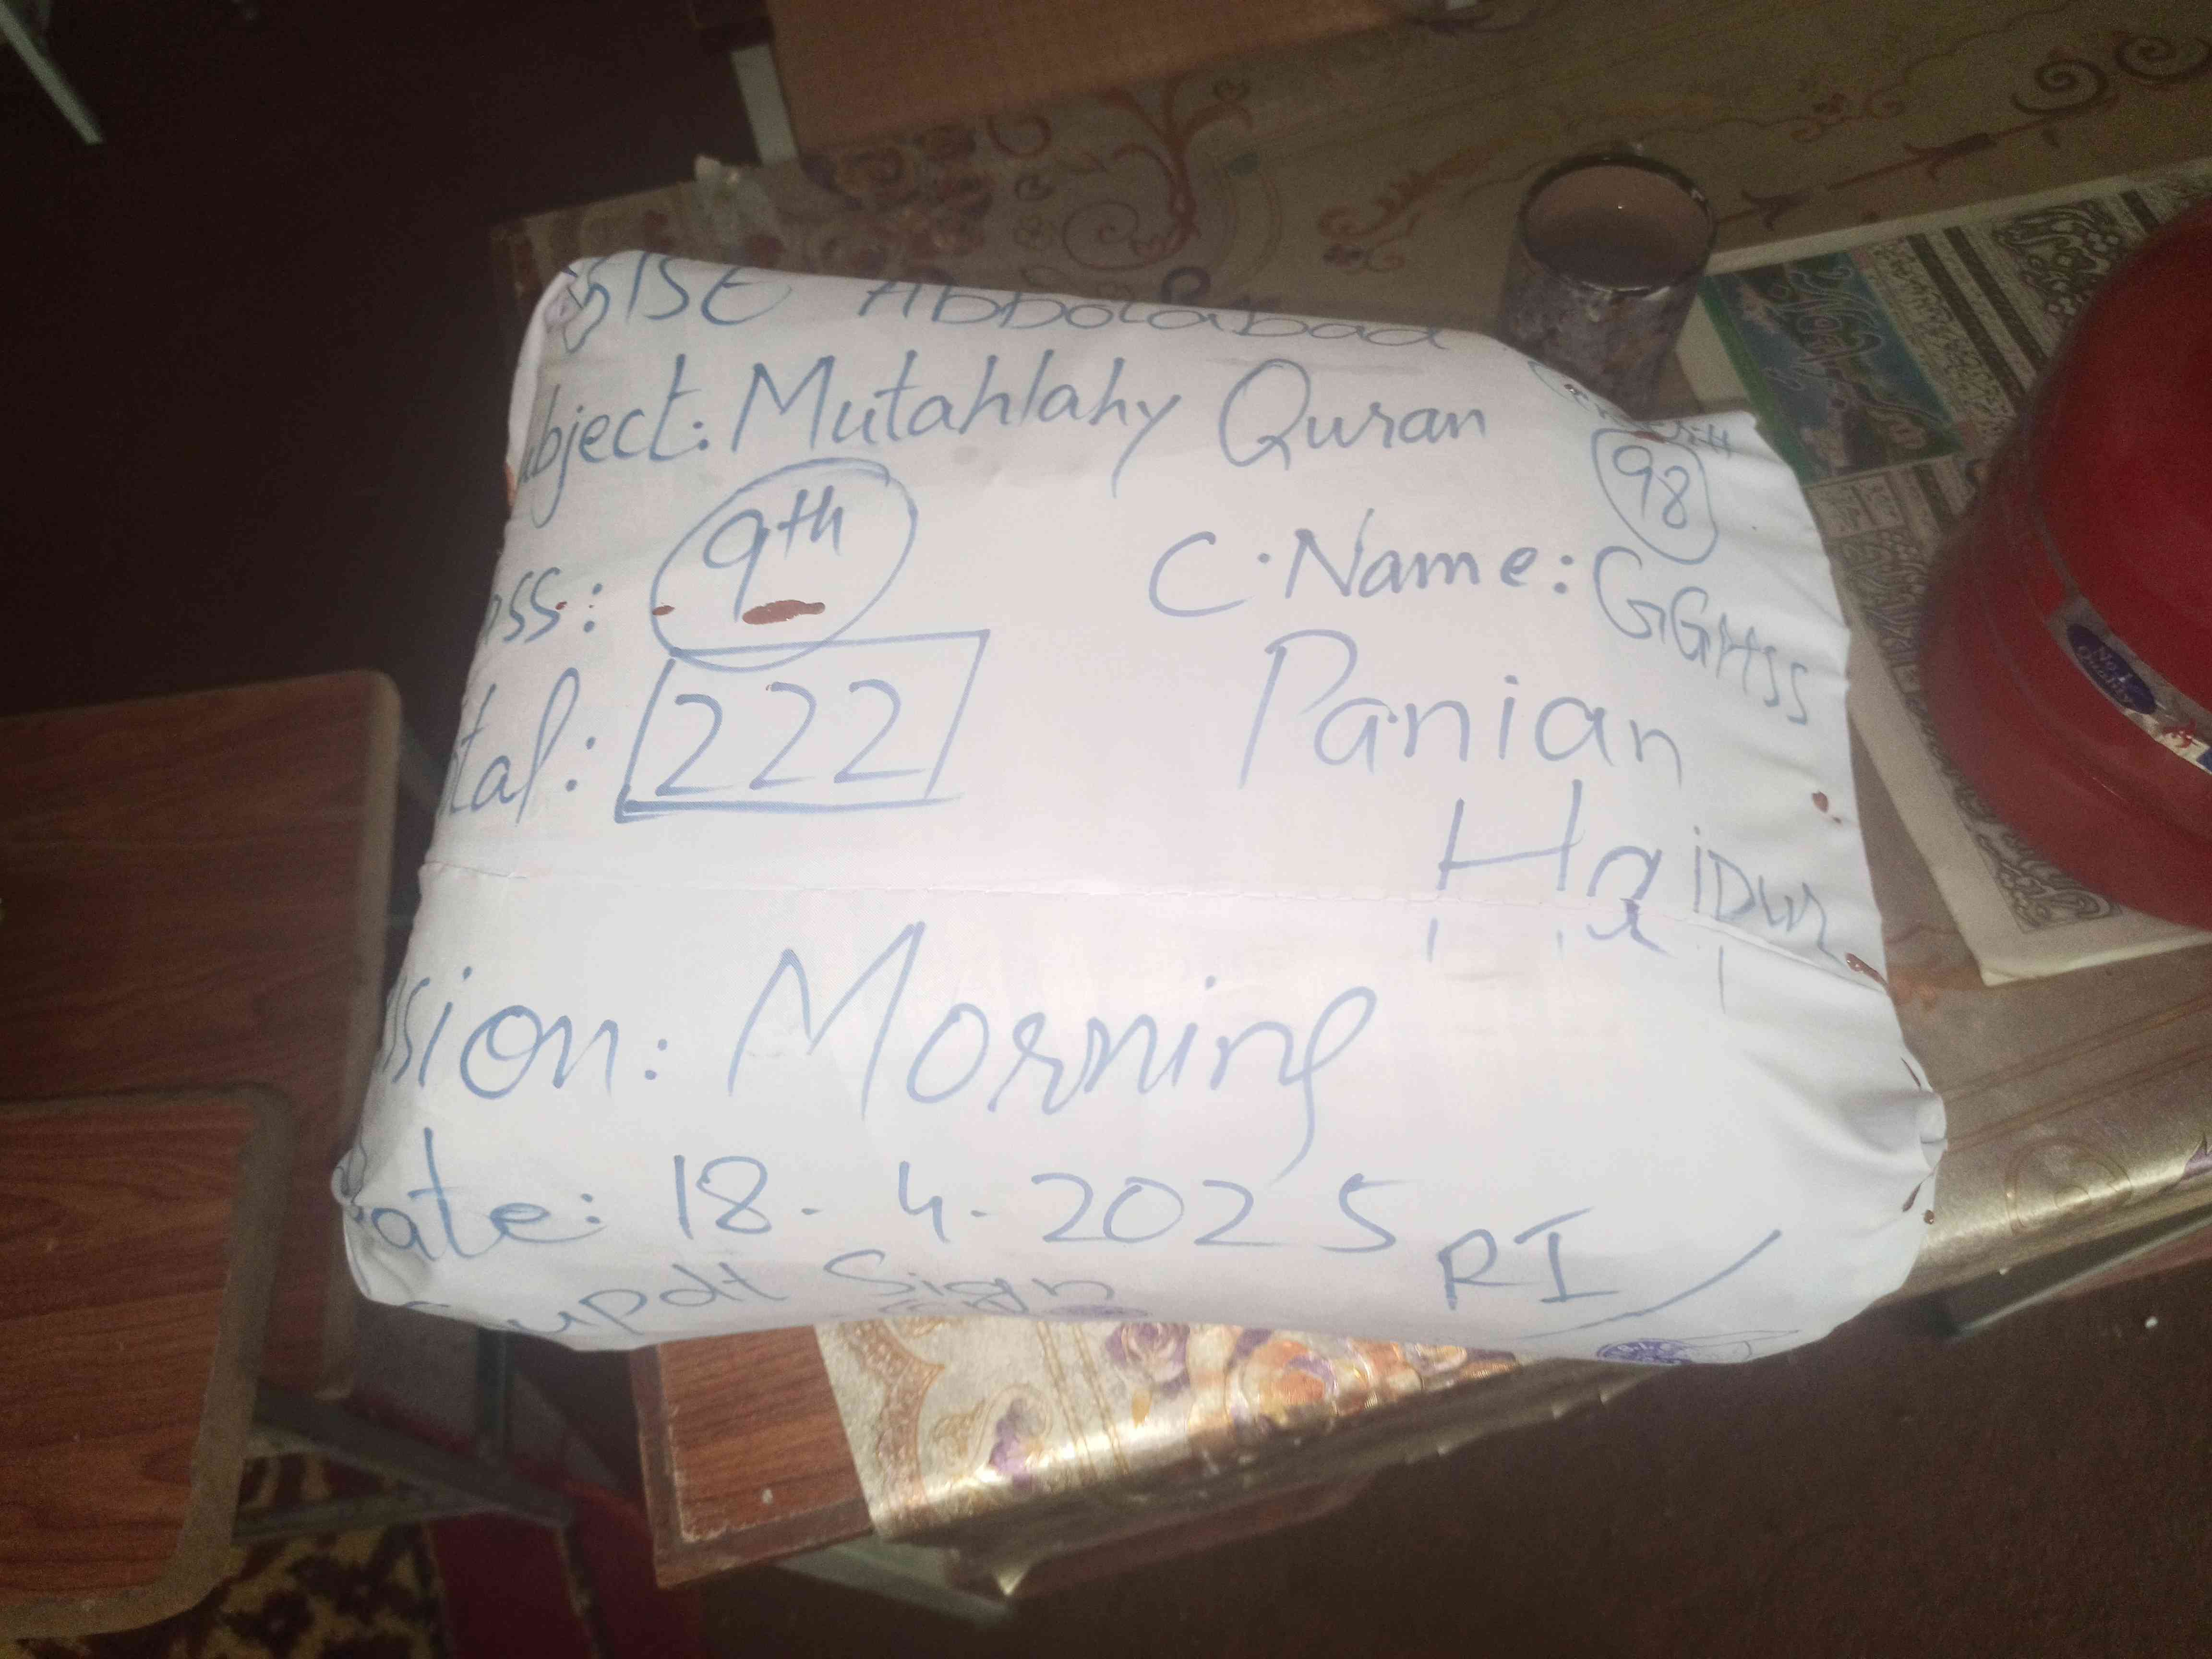 BISE Abbotabad
bject: Mutahlahy Quran
98
ass: 9th
C.Name: GGHSS
tal: 222
Panian
Haripur
ssion: Morning
ate: 18-4-2025
Supdt Sign
RI
No.1
Quality